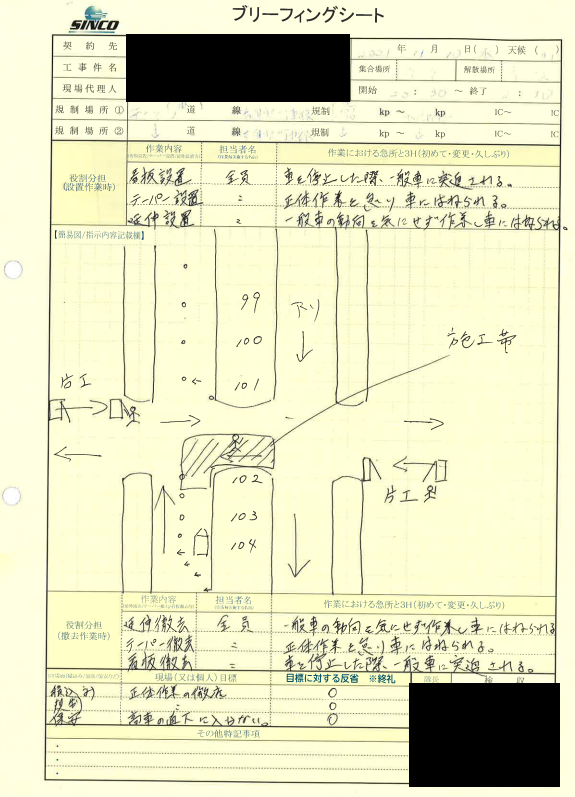 SINCO
ブリーフィングシート
契約先
2021年11月10日(水) 天候
工事件名
集合場所
解散場所
現場代理人
開始 ～ 終了
規制場所① 道 線 規制 kp ～ kp IC～ IC
規制場所② 道 線 規制 kp ～ kp IC～ IC
役割分担
(設置作業時)
作業内容
担当者名
作業における急所と3H(初めて・変更・久しぶり)
看板設置 全員 車を停止した際、一般車に突込される。
テーパー設置 〃 正体作業を怠り車にはねられる。
延伸設置 〃 一般車の動向を気にせず作業し車にはねられる。
【簡易図/指示内容記載欄】
99
100
101
片工
施工帯
102
103
104
片工
役割分担
(撤去作業時)
作業内容
担当者名
作業における急所と3H(初めて・変更・久しぶり)
延伸撤去 全員 一般車の動向を気にせず作業し車にはねられる
テーパー撤去 〃 正体作業を怠り車にはねられる。
看板撤去 〃 車を停止した際一般車に突込される。
現場(又は個人)目標
目標に対する反省 ※終礼
検収
正体作業の徹底 ○
規制 〃 ○
保安 高車の直下に入らない。 ○
その他特記事項